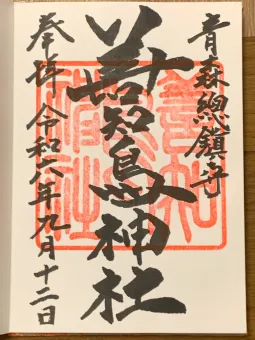 青森總鎮守
善知鳥神社
奉拝 令和六年九月十二日
善知鳥神社